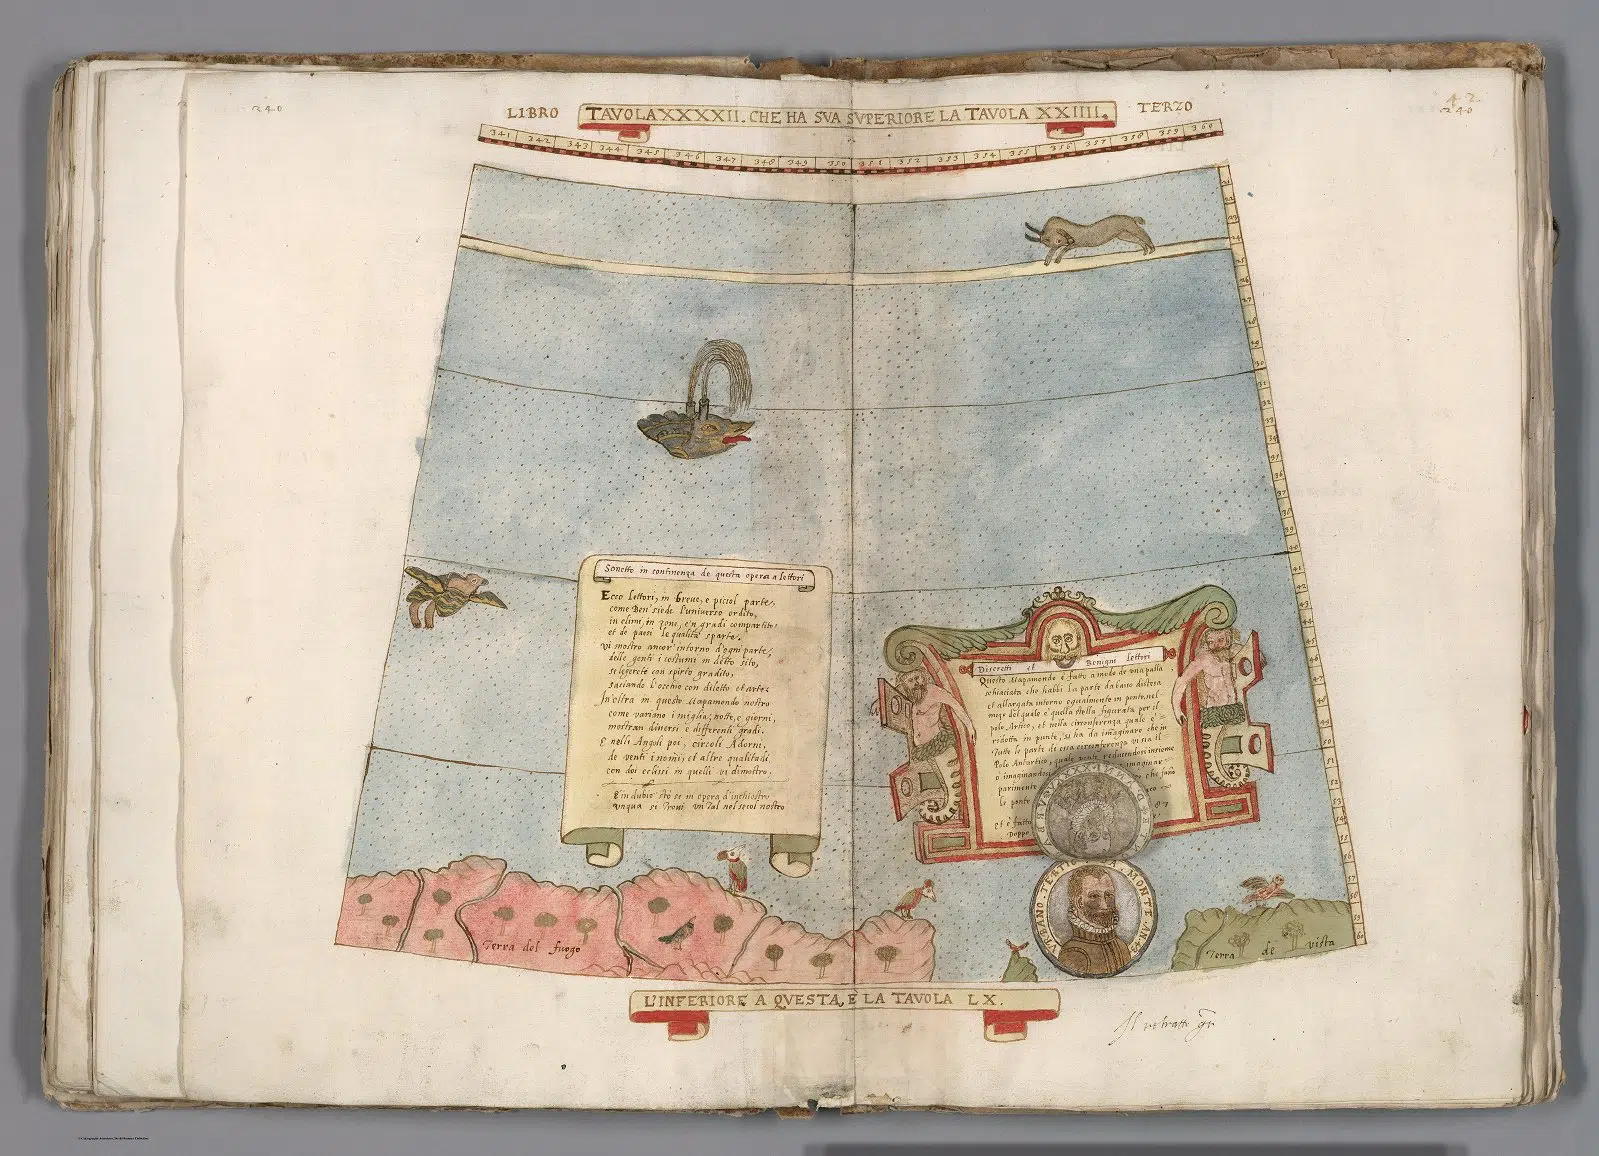 240
LIBRO TAVOLA XXXXII. CHE HA SVA SVPERIORE LA TAVOLA XXIIII. TERZO
42
240
341 342 343 344 345 346 347 348 349 350 351 352 353 354 355 356 357 358 359 360
Sonetto in continenza de questa opera a lettori
Ecco lettori, in breue, e picciol parte,
come ben siede l'uniuerso ordito,
in climi, in zone, e'n gradi compartito,
et de paesi le qualità sparte.
Vi mostro ancor' intorno d'ogni parte,
delle genti i costumi in detto sito,
se legerete con spirto gradito,
saciando l'occhio con diletto et arte.
In oltra in questo Mapamondo nostro
come variano i miglia, notte, e giorni,
mostran diuersi e differenti gradi.
E nelli Angoli poi, circoli Adorni,
de venti i nomi, et altre qualitadi,
con doi eclissi in quelli vi dimostro.
E in dubio stò se in opera d'inchiostro
unqua se troui un tal nel secol nostro
Discretti et Benigni lettori
Questo Mapamondo è fatto a modo de una palla
schiaciata che habbi la parte da basso distesa
et allargata intorno egualmente in ponte, nel
mezo del quale è quella stella figurata per il
polo Artico, et nella circonferenza quale e'
ridotta in punte, si ha da imaginare che in
tutte le parte de essa circonferenza vi sia il
Polo Antartico, quale reducendosi insieme
o imaginandosi imaginar
parimente che fano
le ponte
et è fatto 87
Doppo
VRBANO TERTIO MONTE
Terra del fuogo
Terra de vista
L'INFERIORE A QVESTA, È LA TAVOLA LX.
Il retratto